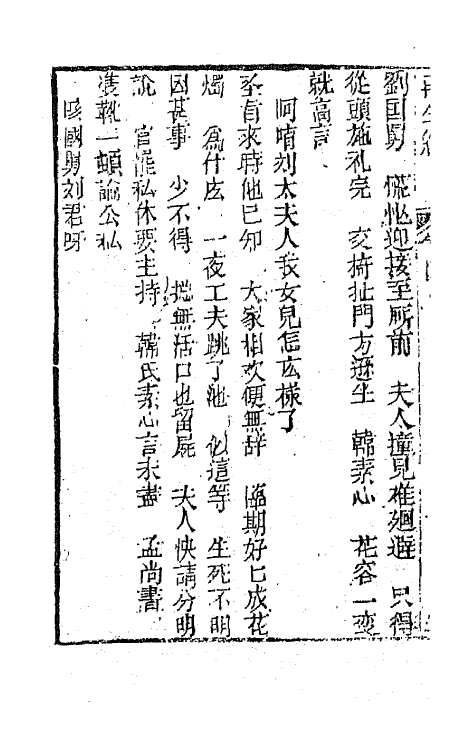 再生緣
劉国舅　慌忙迎接至所前　夫人撞見难廻避　只得
從頭施礼完　交椅扯開方遜坐　韓素心　花容一变
就高言
阿唷刘太夫人我女兒怎庅樣了
圣旨來時他已知　大家相欢便無辞　臨期好匕成花
燭　爲什庅　一夜工夫跳了池　似這等　生死不明
因甚事　少不得　拋無活口也留屍　夫人快請分明
說　官罷私休要主持　韓氏素心言未盡　孟尚書
靴一頓論公私
咳國舅刘君呀